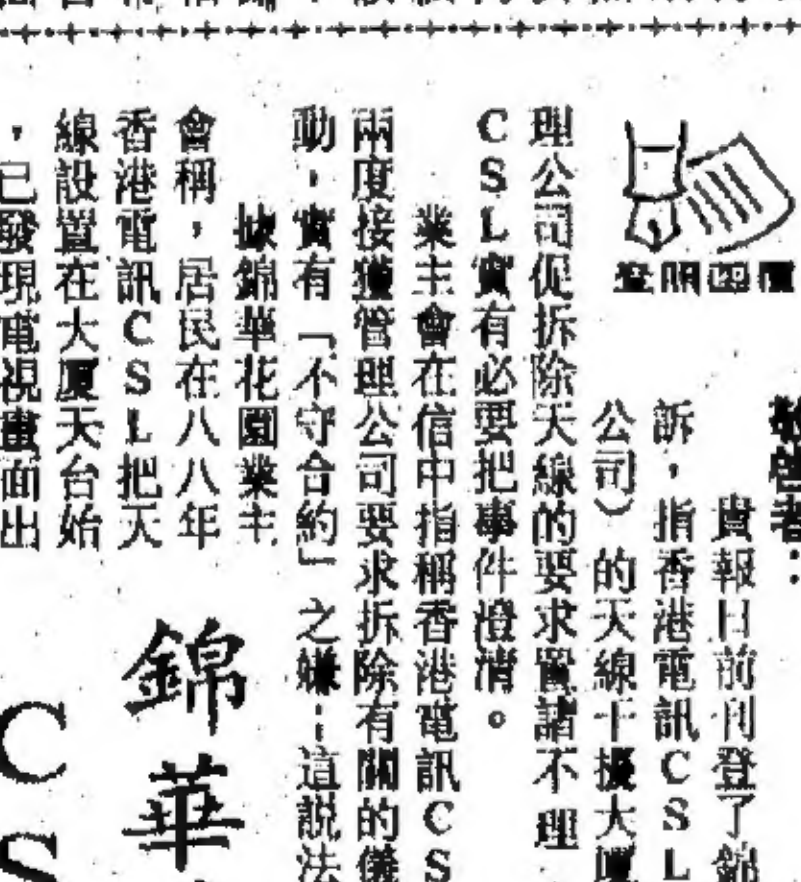 敬啓者：
貴報日前刊登了錦
訴，指香港電訊CSL
公司）的天線干擾大廈
理公司促拆除天線的要求置諸不理
CSL實有必要把事件澄清。
業主會在信中指稱香港電訊CS
兩度接獲管理公司要求拆除有關的儀
動，實有「不守合約」之嫌；這説法
據錦華花園業主
會稱，居民在八八年
香港電訊CSL把天
線設置在大厦天台始
，已發現電視畫面出
錦華
CS